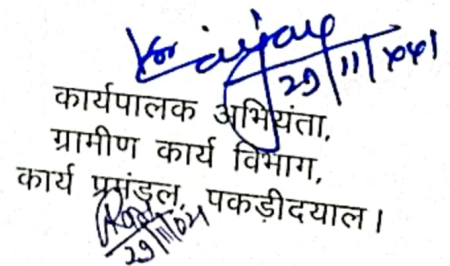 29/11/
कार्यपालक अभियंता,
ग्रामीण कार्य विभाग,
कार्य प्रमंडल, पकड़ीदयाल।
29/11/021